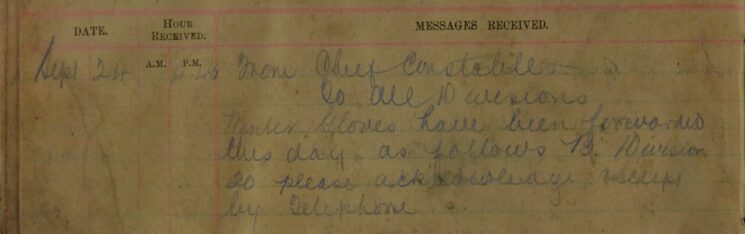 DATE. HOUR RECEIVED. MESSAGES RECEIVED.
A.M. P.M.
Sept 24 From Chief Constable
To All Divisions
Winter Gloves have been forwarded
this day as follows B. Division
20 please acknowledge receipt
by Telephone